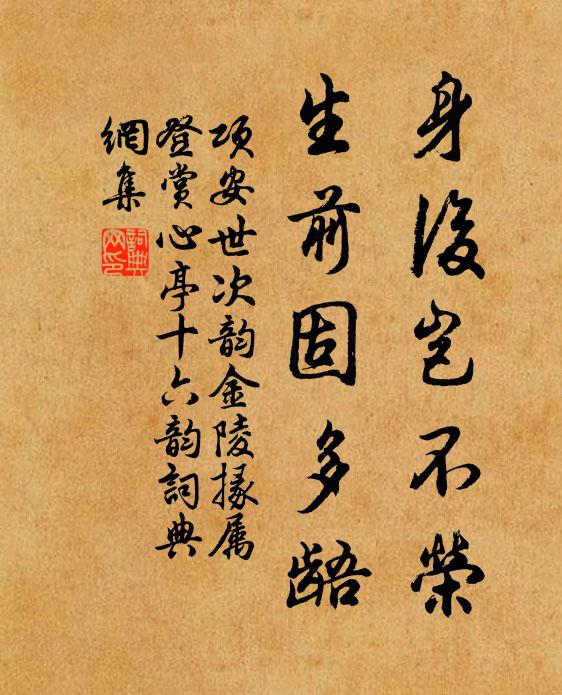 身後豈不榮
生前固多齬
項安世次韵金陵掾属
登賞心亭十六韵詞典
網集
詞典
网印